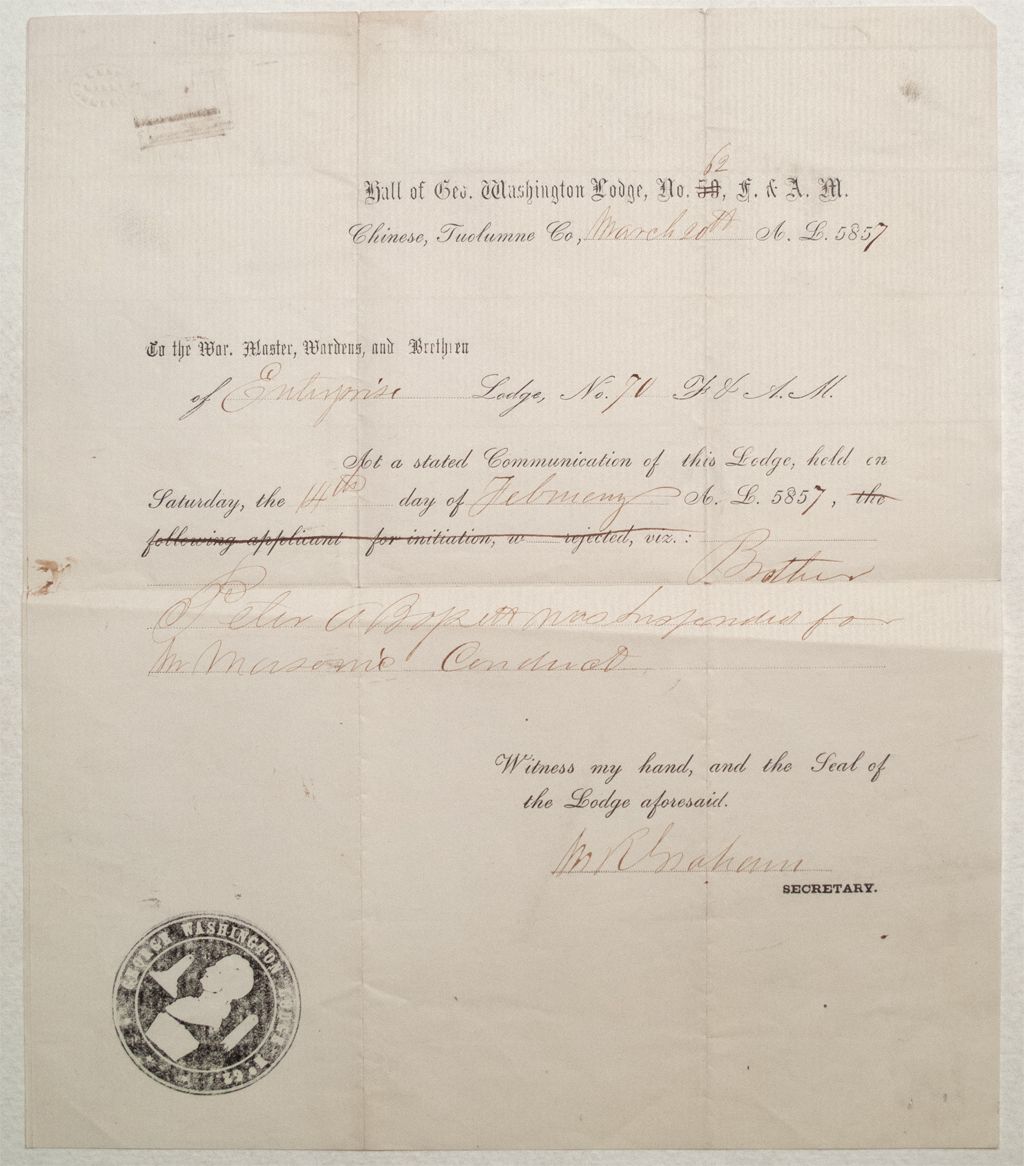 62
Hall of Geo. Washington Lodge, No. 50, F. & A. M.
Chinese, Tuolumne Co, March 20th A. L. 5857
To the Wor. Master, Wardens, and Brethren
of Enterprise Lodge, No. 70 F & A. M.
At a stated Communication of this Lodge, held on
Saturday, the 14th day of February A. L. 5857, the
following applicant for initiation, w rejected, viz.:
Brother
Peter A was Suspended for
Un Masonic Conduct.
Witness my hand, and the Seal of
the Lodge aforesaid.
R Graham
SECRETARY.
GEORGE WASHINGTON LODGE